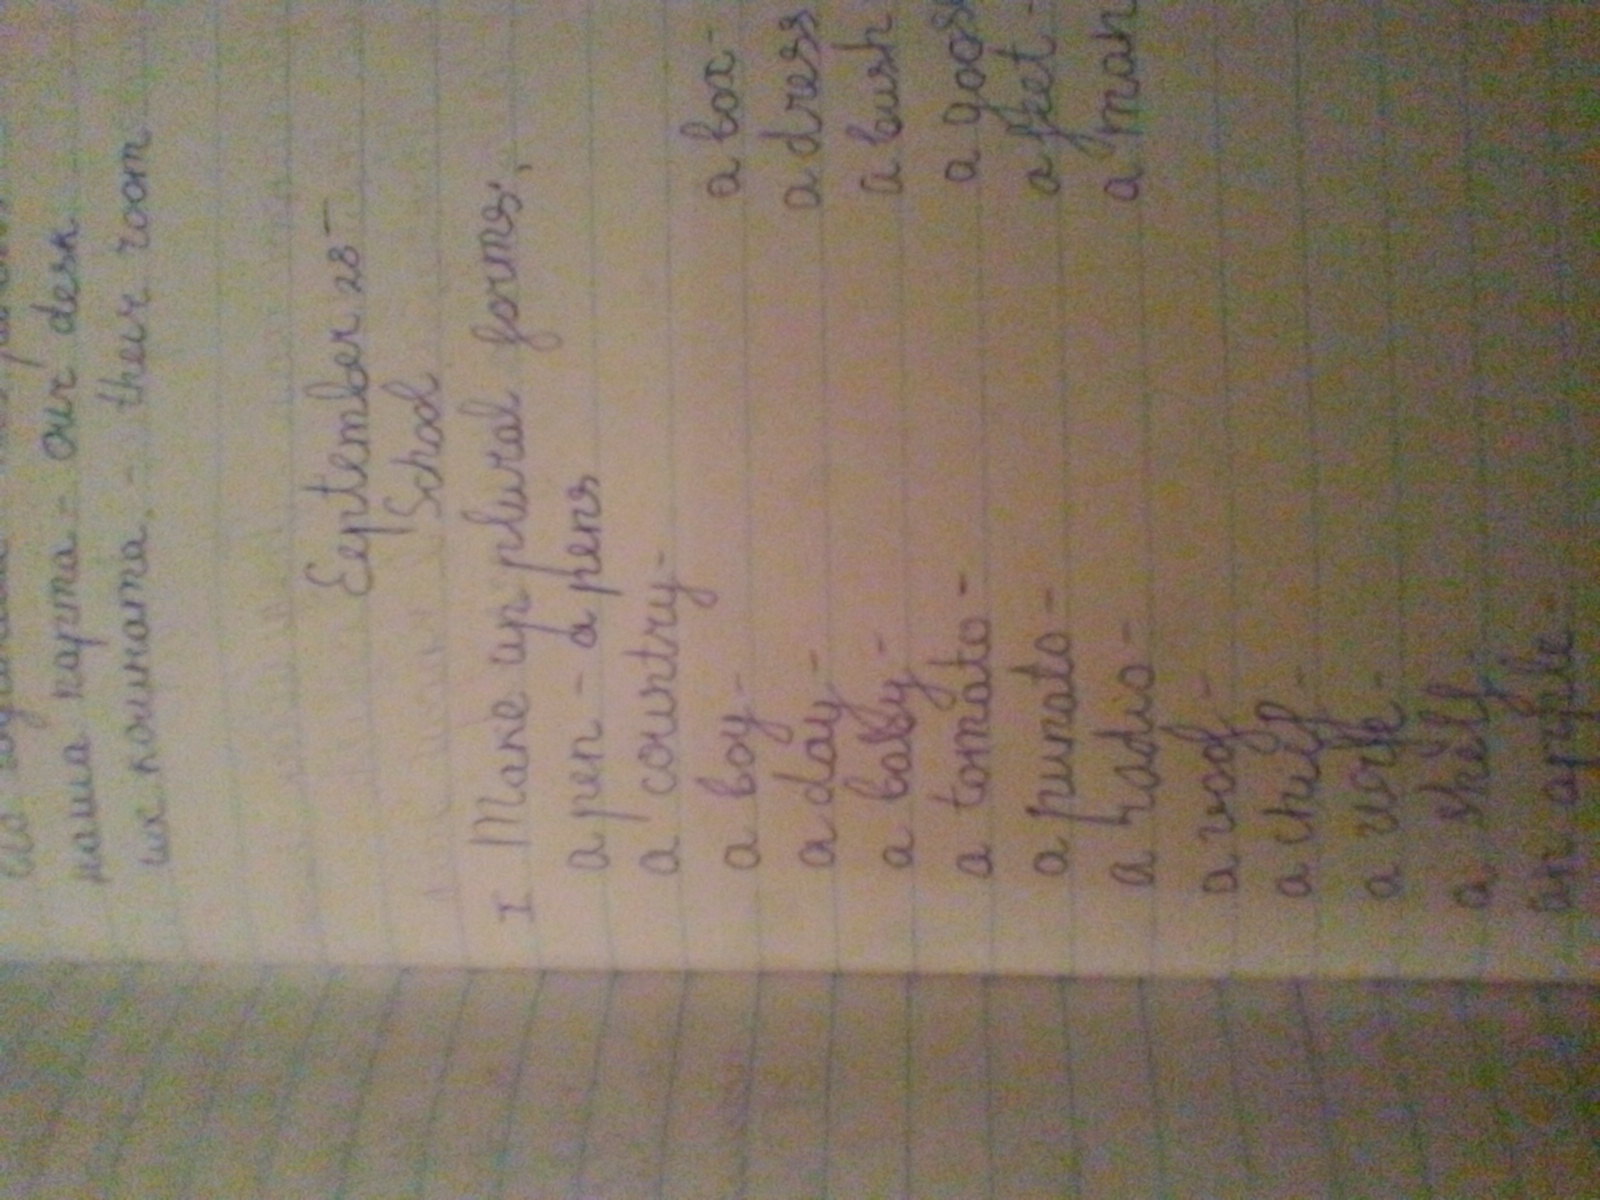 наша парта = our desk
их комната. - their room
September 28
School
I Make up plural forms,
a pen - a pens
a country-
a boy-
a day-
a baby-
a tomato-
a pumato-
a radio-
a roof-
a chif-
a
a shelf
an apple-
a box-
a dress
a bush
a goos
a feet-
a man